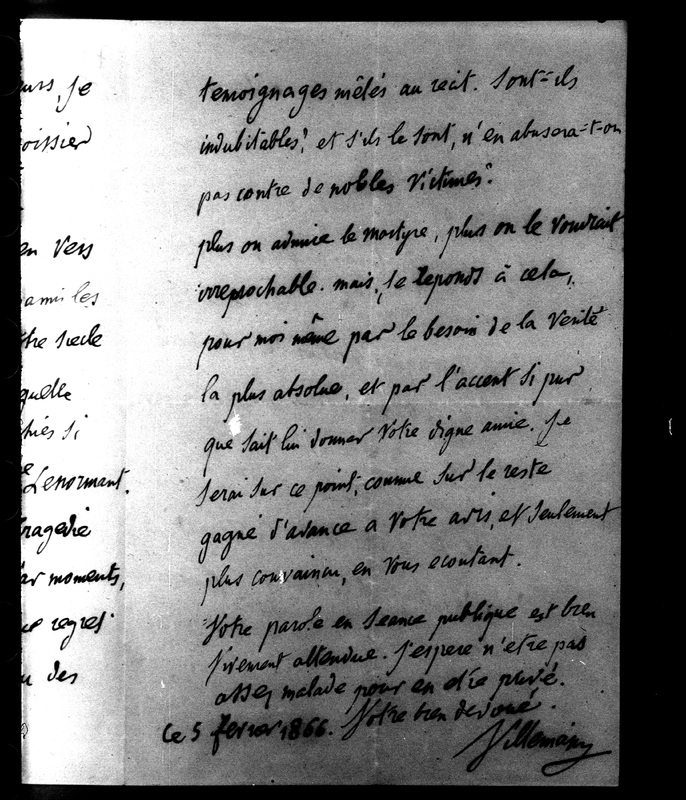 urs, je
oissier
en vers
amilles
tre siecle
quelle
chés si
Lenormant.
tragedie
ar moments,
ce regret
u des
temoignages mêlés au recit. Sont-ils
indubitables? et s'ils le sont, n'en abusera-t-on
pas contre de nobles victimes?
plus on admire le martyre, plus on le voudrait
irreprochable. mais, je reponds à cela,
pour moi même par le besoin de la verité
la plus absolue, et par l'accent si pur
que sait lui donner votre digne amie. Je
serai sur ce point, comme sur le reste
gagné d'avance a votre avis, et seulement
plus convaincu, en vous ecoutant.
Votre parole en seance publique est bien
vivement attendue. J'espere n'etre pas
assez malade pour en etre privé.
Votre bien devoué.
Le 5 fevrier 1866.
Villemain